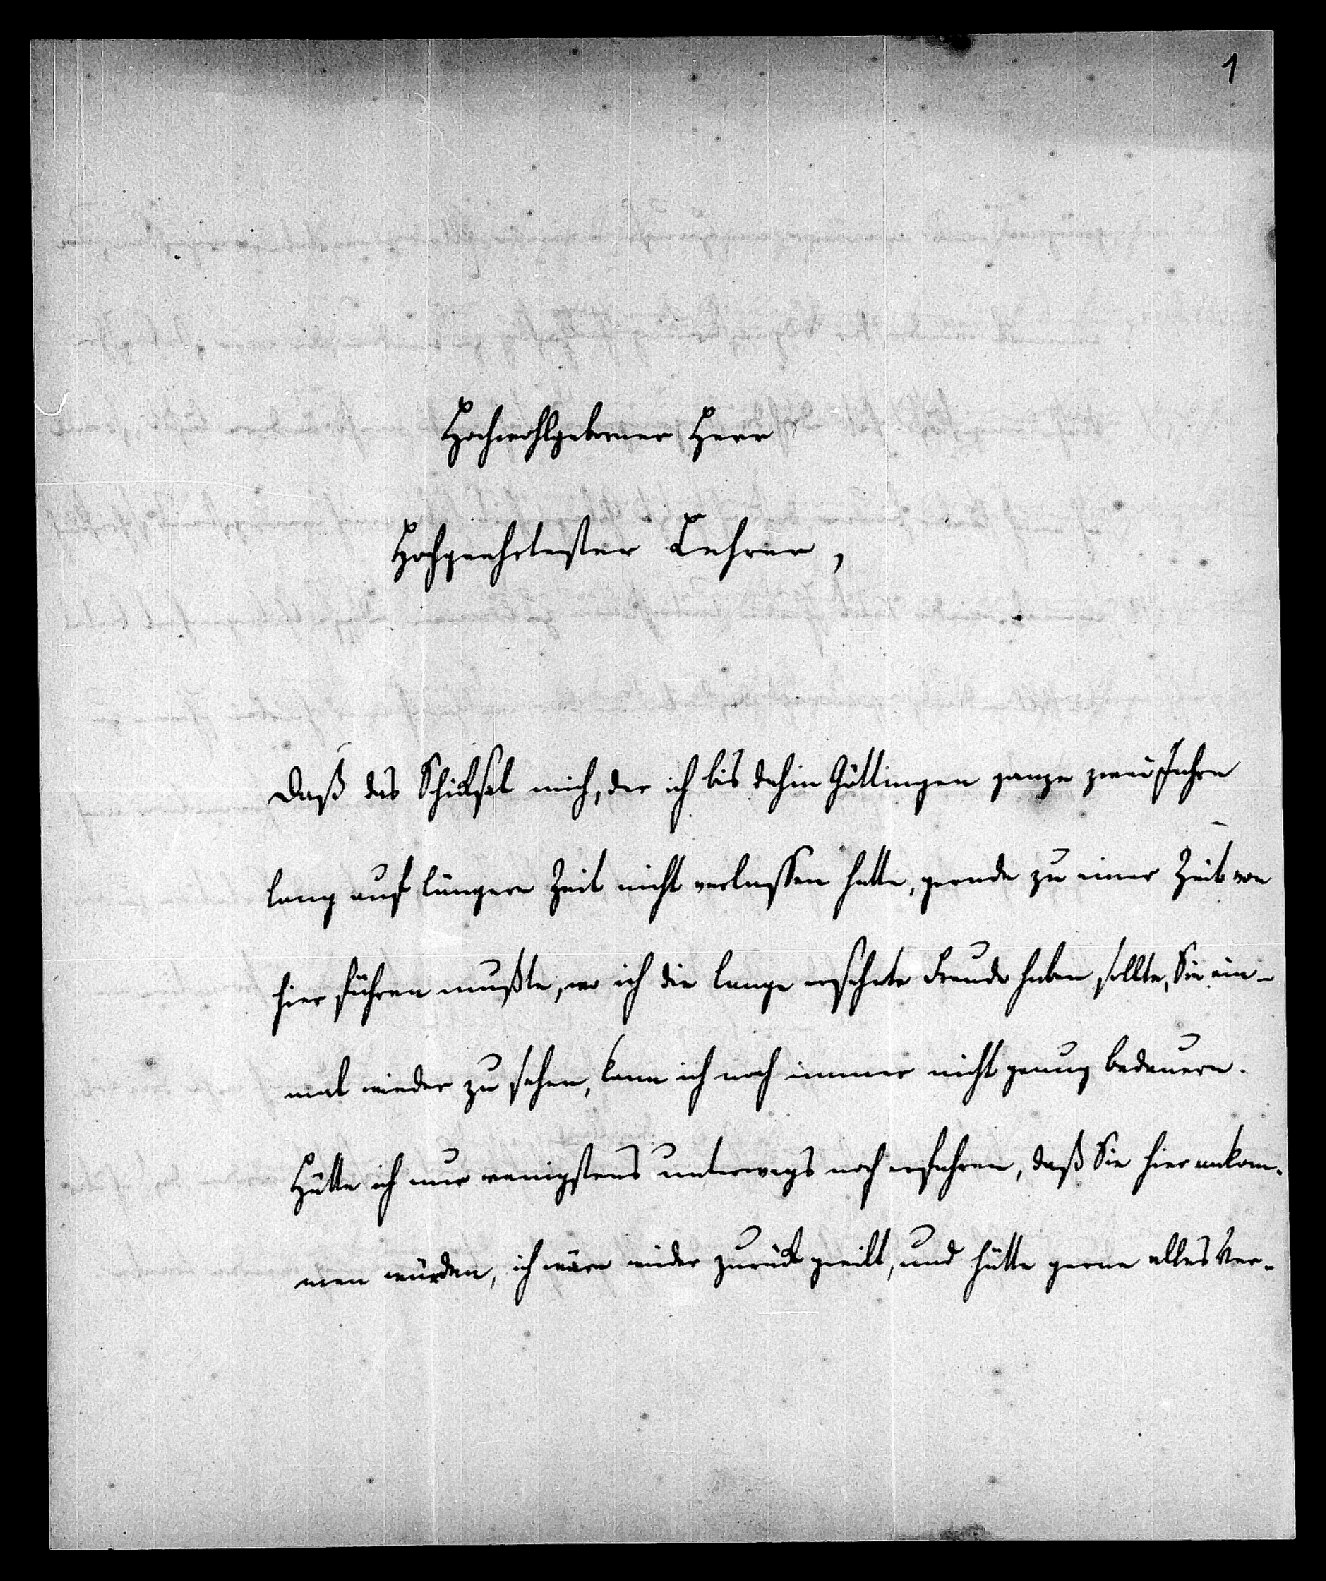 1
Hochwohlgeborner Herr
Hochgeehrtester Lehrer,
Daß das Schicksal mich, der ich bis dahin Göttingen ganze zwei Jahre
lang auf längere Zeit nicht verlassen hatte, gerade zu einer Zeit von
hier führen mußte, wo ich die lange ersehnte Freude haben sollte, Sie ein-
mal wieder zu sehen, kann ich noch immer nicht genug bedauern.
Hätte ich nur wenigstens unterwegs noch erfahren, daß Sie hier ankom-
men würden, ich wäre wider zurück geeilt, und hätte gerne alles Ver-